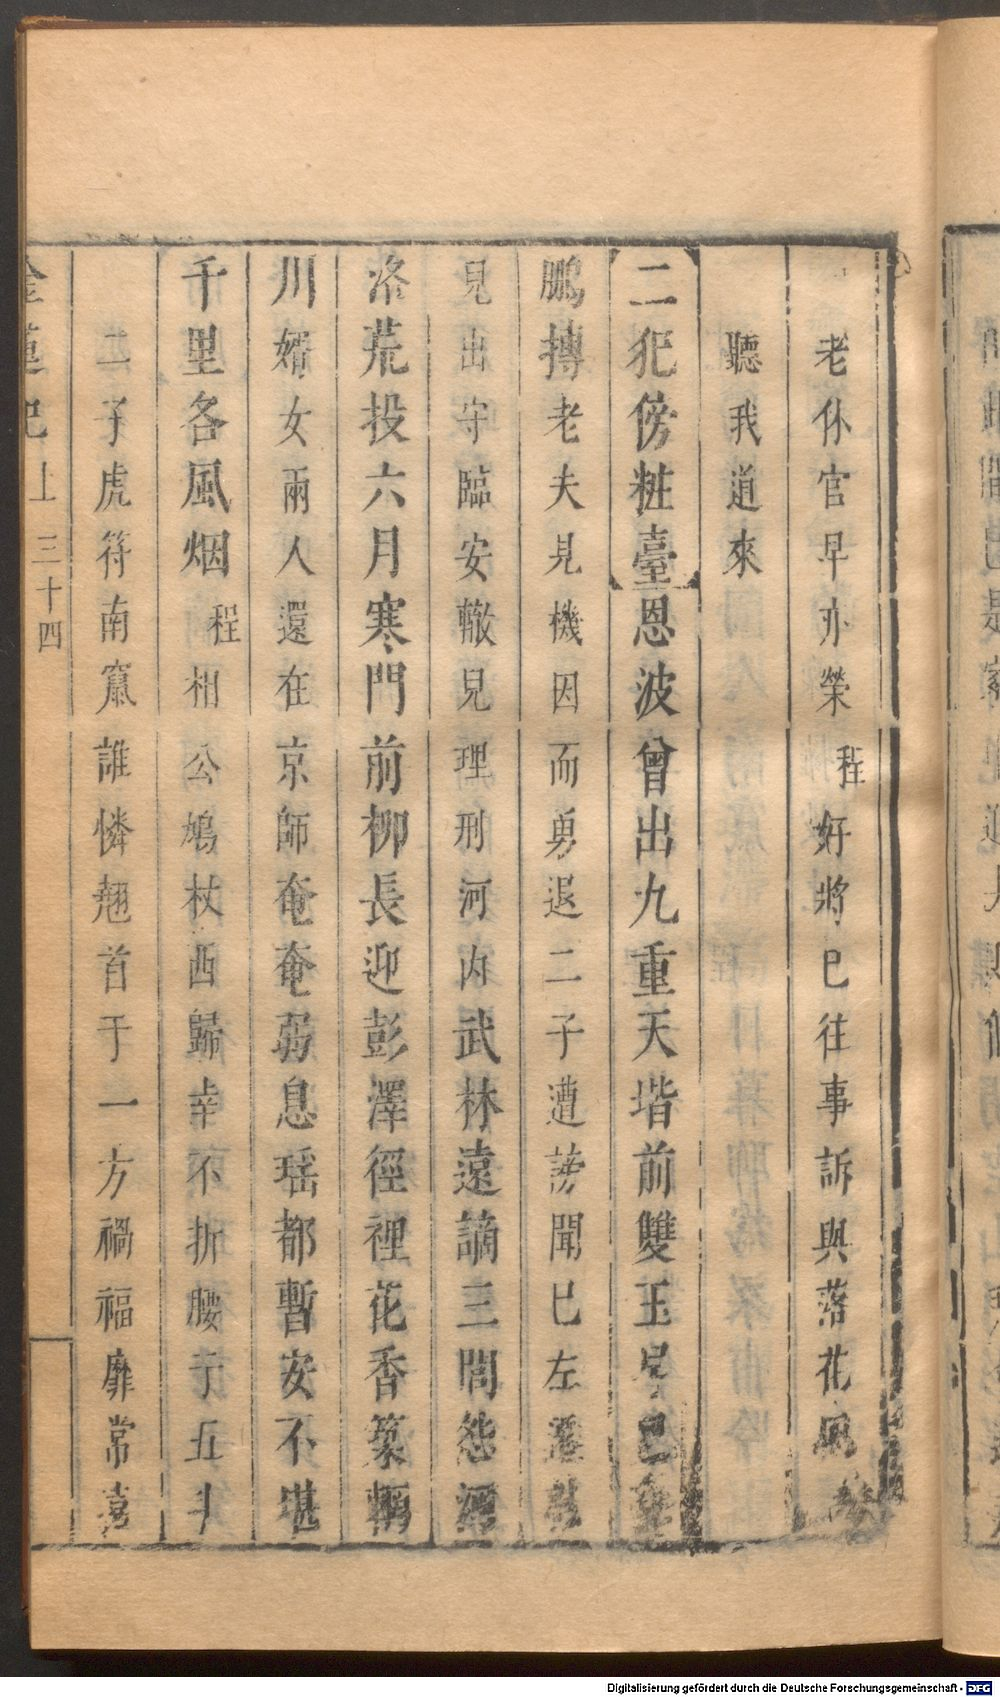 老休官早亦榮程好將已往事訴與落花風
聽我道來
二犯傍粧臺恩波曾出九重天堦前雙玉早已
鵬摶老夫見機因而勇退二子遭謗聞已左遷
見出守臨安轍見理刑河內武林遠謫三閭怨
洛荒投六月寒門前柳長迎彭澤徑裡花香
川婿女兩人還在京師奄奄弱息瑶都暫安不堪
千里各風烟程相公鳩杖西歸幸不折腰于五斗
二子虎符南竄誰憐翹首于一方禍福靡常喜
金蓮記上三十四
Digitalisierung gefördert durch die Deutsche Forschungsgemeinschaft - DFG